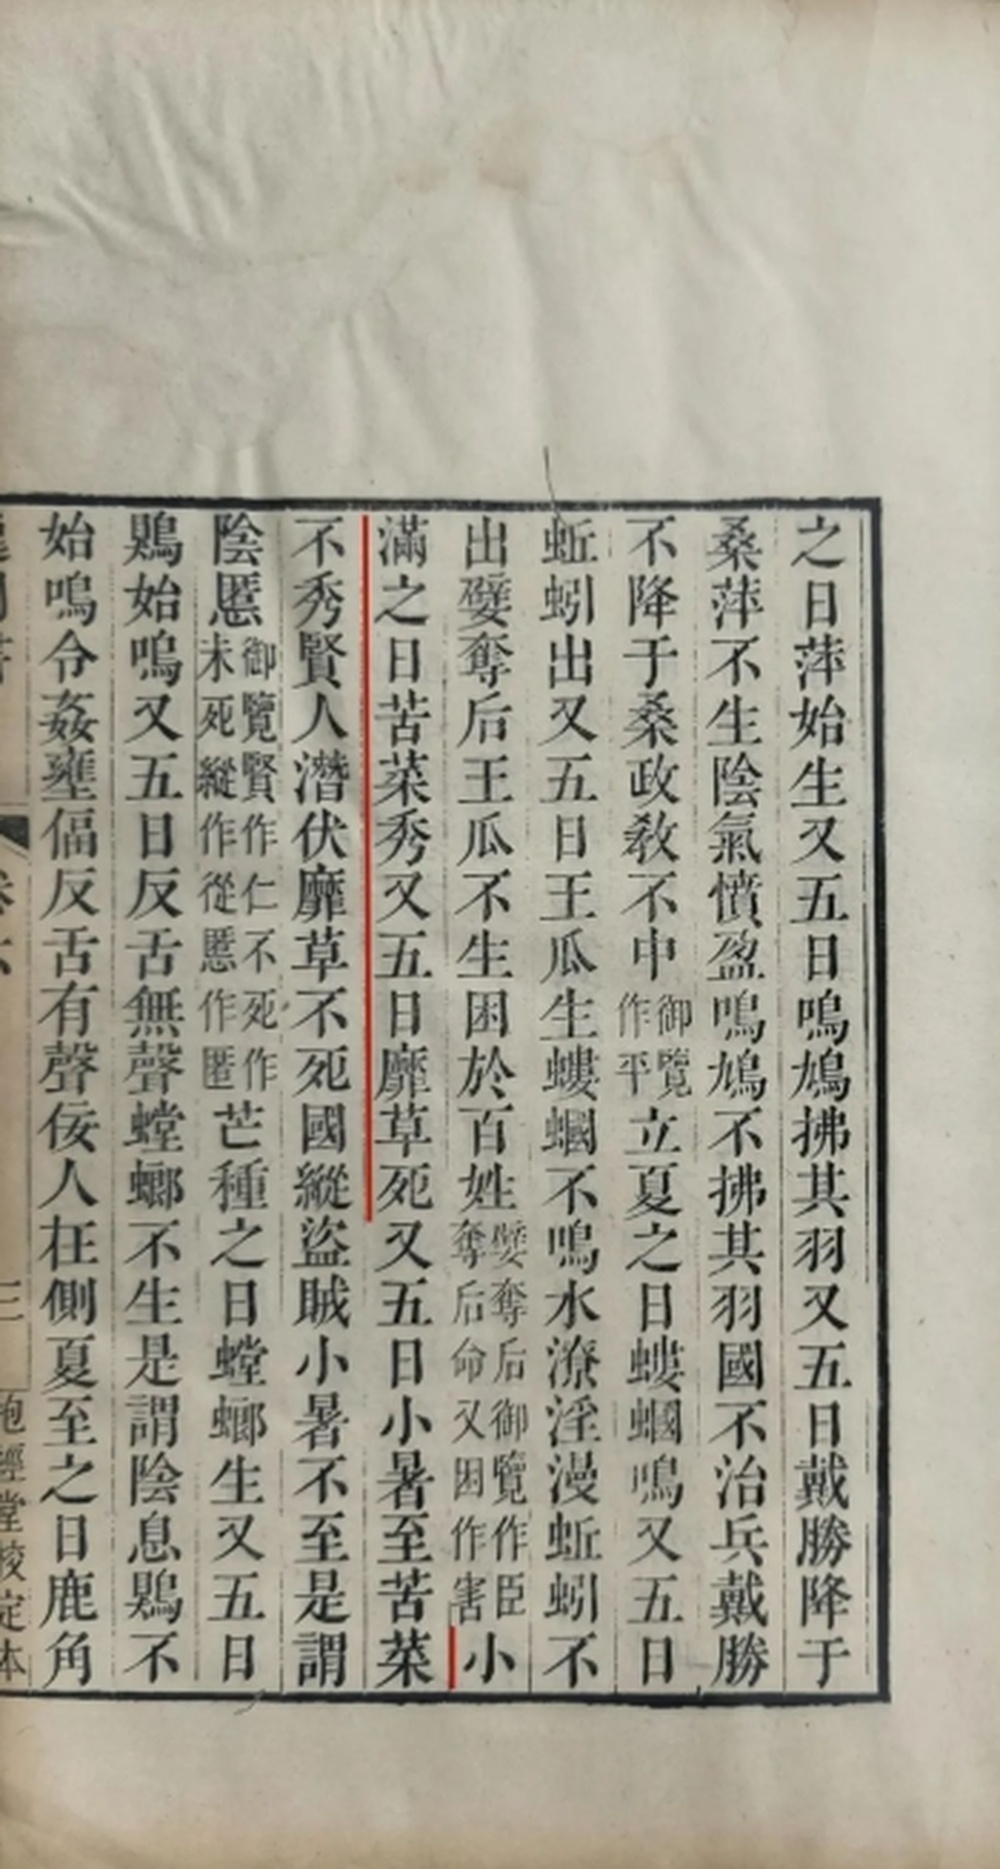 之日萍始生又五日鳴鳩拂其羽又五日戴勝降于
桑萍不生陰氣憤盈鳴鳩不拂其羽國不治兵戴勝
不降于桑政敎不中御覽作平立夏之日螻蟈鳴又五日
蚯蚓出又五日王瓜生螻蟈不鳴水潦淫漫蚯蚓不
出嬖奪后王瓜不生困於百姓嬖奪后御覽作臣奪后命又困作害小
滿之日苦菜秀又五日靡草死又五日小暑至苦菜
不秀賢人潛伏靡草不死國縱盜賊小暑不至是謂
陰慝御覽賢作仁不死作未死縱作從慝作匿芒種之日螳螂生又五日
鶪始鳴又五日反舌無聲螳螂不生是謂陰息鶪不
始鳴令姦壅偪反舌有聲佞人在側夏至之日鹿角
卷六
三
抱經堂校定本